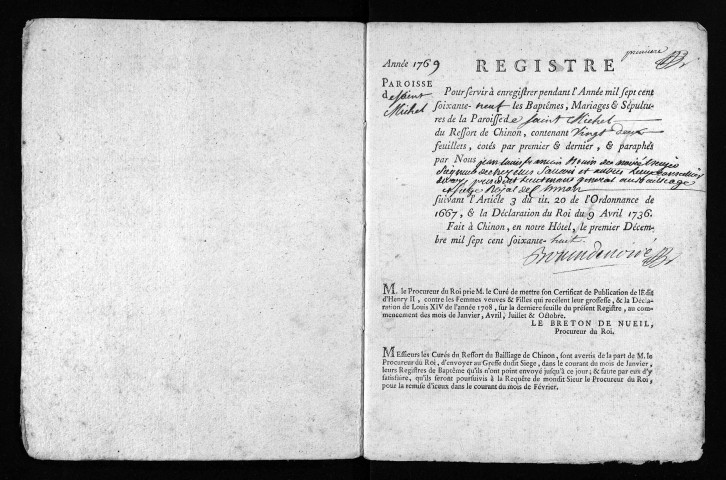 première
Année 1769 REGISTRE
PAROISSE
de Saint
Michel
Pour servir à enregistrer pendant l'Année mil sept cent
soixante-neuf les Baptêmes, Mariages & Sépultu-
res de la Paroisse de Saint Michel
du Ressort de Chinon, contenant vingt deux
feuillets, cotés par premier & dernier, & paraphés
par Nous Jean Louis francois
Lieutenant general au Bailliage
et Siege Royal de Chinon
suivant l'Article 3 du tit. 20 de l'Ordonnance de
1667, & la Déclaration du Roi du 9 Avril 1736.
Fait à Chinon, en notre Hôtel, le premier Décem-
bre mil sept cent soixante-huit.
M. le Procureur du Roi prie M. le Curé de mettre son Certificat de Publication de l'Edit
d'Henry II, contre les Femmes veuves & Filles qui recélent leur grossesse, & la Décla-
ration de Louis XIV de l'année 1708, sur la derniere feuille du présent Registre, au com-
mencement des mois de Janvier, Avril, Juillet & Octobre.
LE BRETON DE NUEIL,
Procureur du Roi.
MEssieurs les Curés du Ressort du Bailliage de Chinon, sont avertis de la part de M. le
Procureur du Roi, d'envoyer au Greffe dudit Siege, dans le courant du mois de Janvier,
leurs Registres de Baptême qu'ils n'ont point envoyé jusqu'à ce jour; & faute par eux d'y
satisfaire, qu'ils seront poursuivis à la Requête de mondit Sieur le Procureur du Roi,
pour la remise d'iceux dans le courant du mois de Février.